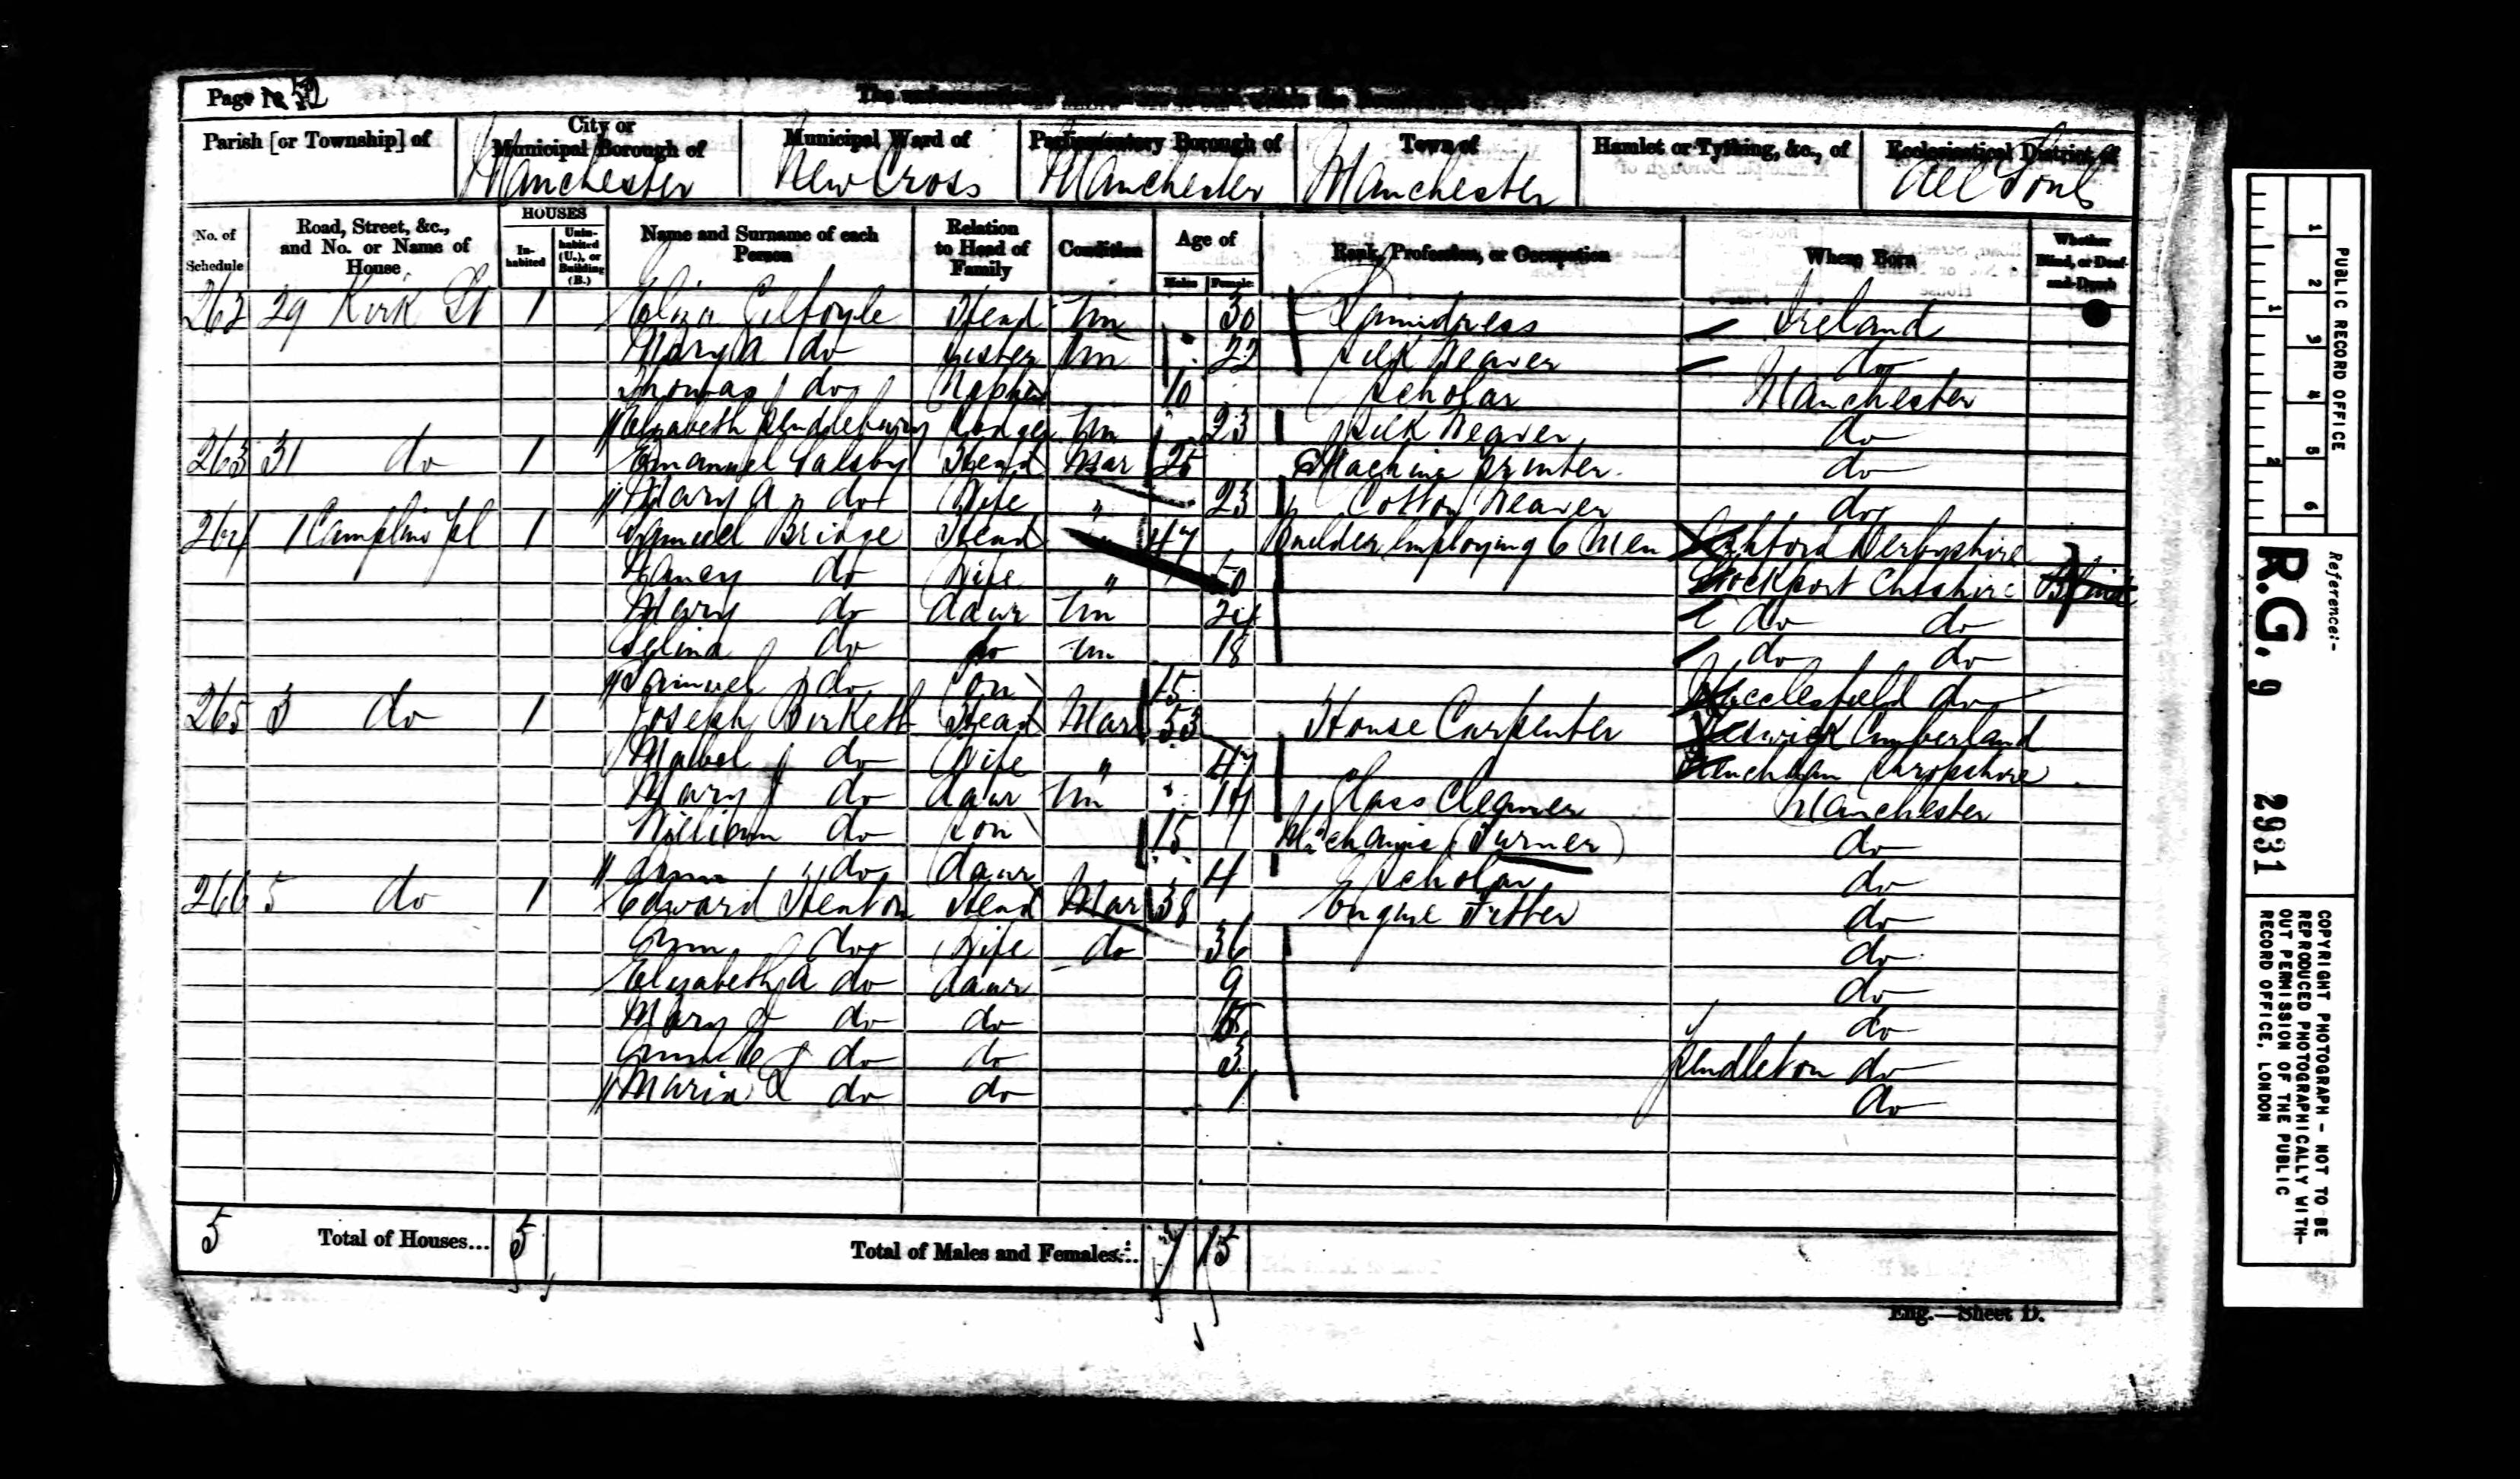 Page 52
Parish [or Township] of
City or Municipal Borough of Manchester
Municipal Ward of New Cross
Parliamentary Borough of Manchester
Town of Manchester
Hamlet or Tything, &c., of
Ecclesiastical District of All Souls
No. of Schedule
Road, Street, &c., and No. or Name of House
HOUSES
In-habited
Unin-habited (U.), or Building (B.)
Name and Surname of each Person
Relation to Head of Family
Condition
Age of
Males Females
Rank, Profession, or Occupation
Where Born
Whether Blind, or Deaf-and-Dumb
262 29 Kirk St 1 Eliza Gilfoyle Head Un 30 Ireland
Mary A do Sister Un 22 Silk Weaver do
Thomas do Nephew 10 Scholar Manchester
Elizabeth Pendlebury Lodger Un 23 Silk Weaver do
263 31 do 1 Emanuel Head Mar 25 Machine Printer do
Mary A do Wife " 23 Cotton Weaver do
264 1 pl 1 Samuel Bridge Head 47 Builder employing 6 Men Ashford Derbyshire
Nancy do Wife " 50 Stockport Cheshire Blind
Mary do daur Un 24 do do
Selina do do Un 18 do do
Samuel do Son 15 Macclesfield do
265 3 do 1 Joseph Birkett Head Mar 53 House Carpenter Keswick Cumberland
Mabel do Wife " 47 Shropshire
Mary do daur Un 14 Glass Cleaner Manchester
William do Son 15 Mechanic (Turner) do
Ann do daur 4 Scholar do
266 5 do 1 Edward Henton Head Mar 38 Engine Fitter do
Ann do Wife do 36 do
Elizabeth A do daur 9 do
Mary do do do
do do 3 Pendleton do
Maria L do do 1 do
5 Total of Houses... 5 Total of Males and Females... 7 15
Eng.—Sheet D.
PUBLIC RECORD OFFICE
1 2 3 4 5 6
1 2
Reference:-
R.G. 9 2931
COPYRIGHT PHOTOGRAPH - NOT TO BE
REPRODUCED PHOTOGRAPHICALLY WITH-
OUT PERMISSION OF THE PUBLIC
RECORD OFFICE, LONDON